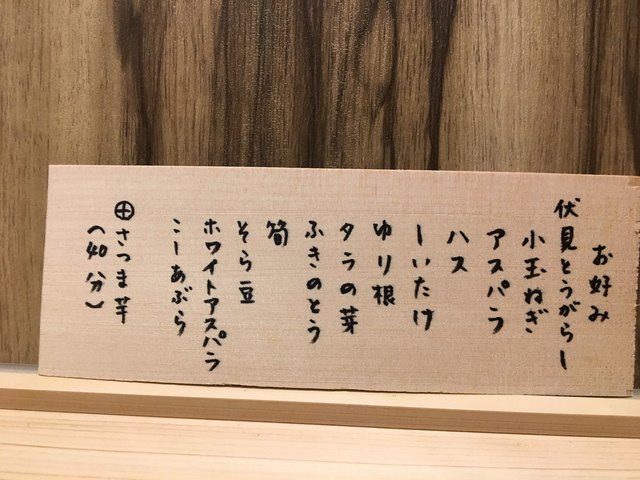 お好み
伏見とうがらし
小玉ねぎ
アスパラ
ハス
しいたけ
ゆり根
タラの芽
ふきのとう
筍
そら豆
ホワイトアスパラ
こーあぶら
⊕さつま芋
(40分)